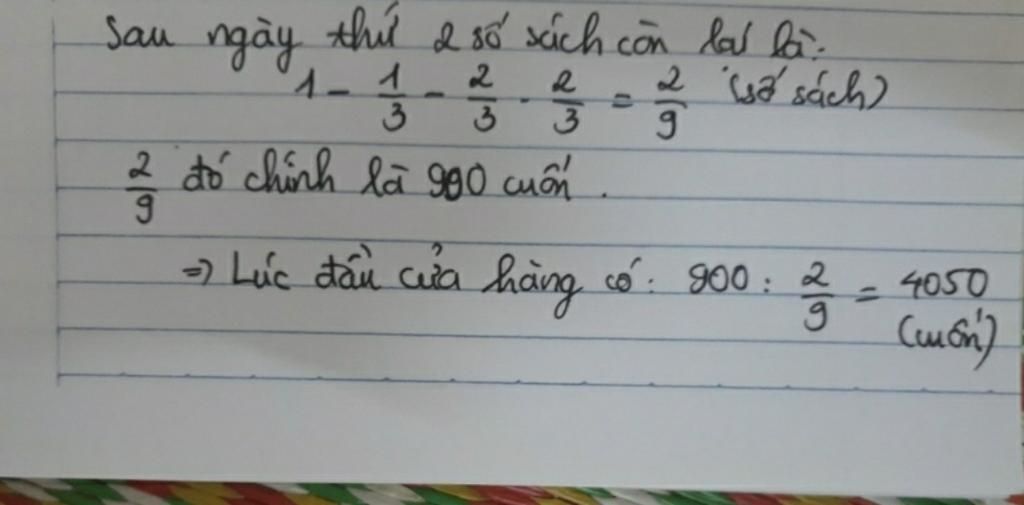 Sau ngày thứ 2 số sách còn lại là:
1 - 1/3 - 2/3 . 2/3 = 2/9 (số sách)
2/9 đó chính là 900 cuốn.
=> Lúc đầu cửa hàng có: 900 : 2/9 = 4050
(cuốn)